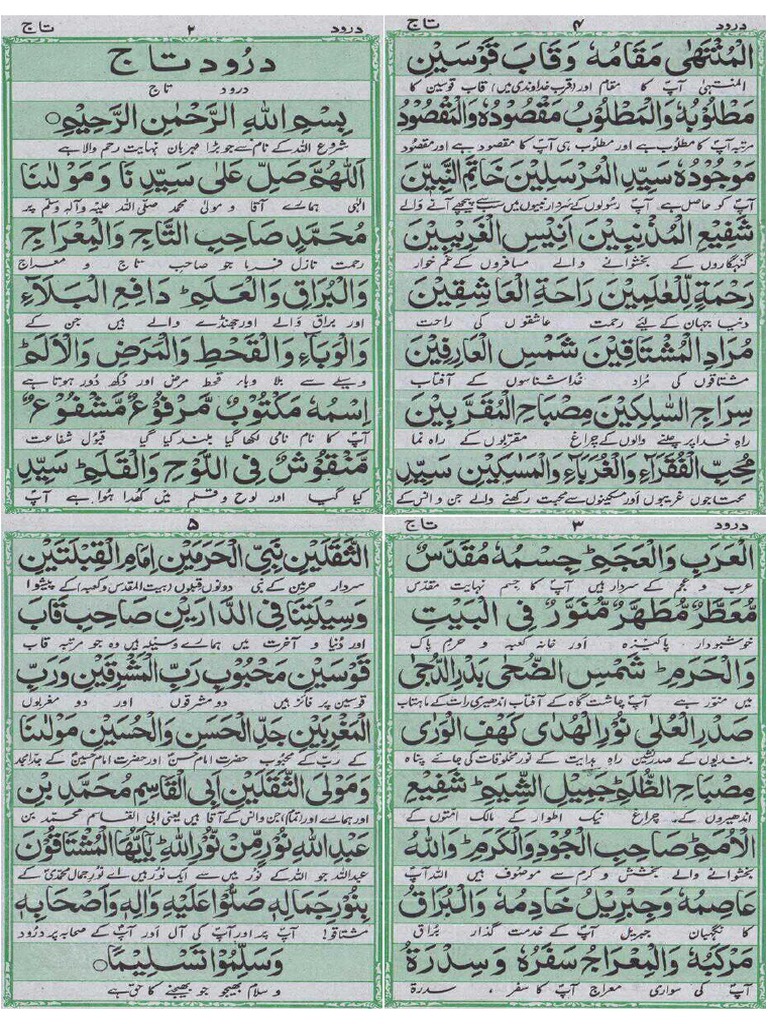 درود ۲ تاج
درود تاج
درود تاج
بِسْمِ اللهِ الرَّحْمٰنِ الرَّحِيْمِ
شروع اللہ کے نام سے جو بڑا مہربان نہایت رحم والا ہے
اَللّٰهُمَّ صَلِّ عَلٰى سَيِّدِنَا وَمَوْلٰنَا
الٰہی ہمارے آقا و مولیٰ محمد صلی اللہ علیہ وآلہ وسلم پر
مُحَمَّدٍ صَاحِبِ التَّاجِ وَالْمِعْرَاجِ
رحمت نازل فرما جو صاحب تاج و معراج
وَالْبُرَاقِ وَالْعَلَمِ ط دَافِعِ الْبَلَاءِ
اور براق والے اور جھنڈے والے ہیں جن کے
وَالْوَبَاءِ وَالْقَحْطِ وَالْمَرَضِ وَالْاَلَمِ ط
وسیلے سے بلا وباء قحط مرض اور دکھ دور ہوتا ہے
اِسْمُهٗ مَكْتُوْبٌ مَّرْفُوْعٌ مَّشْفُوْعٌ
آپ کا نام نامی لکھا گیا بلند کیا گیا قبول شفاعت
مَّنْقُوْشٌ فِى اللَّوْحِ وَالْقَلَمِ ط سَيِّدِ
کیا گیا اور لوح و قلم میں کھدا ہوا ہے آپ
درود ۳ تاج
الْعَرَبِ وَالْعَجَمِ ط جِسْمُهٗ مُقَدَّسٌ
عرب و عجم کے سردار ہیں آپ کا جسم نہایت مقدس
مُّعَطَّرٌ مُّطَهَّرٌ مُّنَوَّرٌ فِى الْبَيْتِ
خوشبودار پاکیزہ اور خانہ کعبہ و حرم پاک
وَالْحَرَمِ ط شَمْسِ الضُّحٰى بَدْرِ الدُّجٰى
میں منور ہے آپ چاشت گاہ کے آفتاب اندھیری رات کے ماہتاب
صَدْرِ الْعُلٰى نُوْرِ الْهُدٰى كَهْفِ الْوَرٰى
بلندیوں کے صدر نشین راہ ہدایت کے نور مخلوقات کی جائے پناہ
مِصْبَاحِ الظُّلَمِ ط جَمِيْلِ الشِّيَمِ ط شَفِيْعِ
اندھیروں کے چراغ نیک اطوار کے مالک امتوں کے
الْاُمَمِ ط صَاحِبِ الْجُوْدِ وَالْكَرَمِ ط وَاللهُ
بخشوانے والے بخشش و کرم سے موصوف ہیں اللہ آپ
عَاصِمُهٗ وَجِبْرِيْلُ خَادِمُهٗ وَالْبُرَاقُ
کا نگہبان جبریل آپ کے خدمت گذار براق
مَرْكَبُهٗ وَالْمِعْرَاجُ سَفَرُهٗ وَسِدْرَةُ
آپ کی سواری معراج آپ کا سفر، سدرۃ
درود ۴ تاج
الْمُنْتَهٰى مَقَامُهٗ وَقَابَ قَوْسَيْنِ
المنتہیٰ آپ کا مقام اور (قرب خداوندی میں) قاب قوسین کا
مَطْلُوْبُهٗ وَالْمَطْلُوْبُ مَقْصُوْدُهٗ وَالْمَقْصُوْدُ
مرتبہ آپ کا مطلوب ہے اور مطلوب ہی آپ کا مقصود ہے اور مقصود
مَوْجُوْدُهٗ سَيِّدِ الْمُرْسَلِيْنَ خَاتِمِ النَّبِيّٖنَ
آپ کو حاصل ہے آپ رسولوں کے سردار نبیوں میں سب سے پیچھے آنے والے
شَفِيْعِ الْمُذْنِبِيْنَ اَنِيْسِ الْغَرِيْبِيْنَ
گنہگاروں کے بخشوانے والے مسافروں کے غم خوار
رَحْمَةٍ لِّلْعٰلَمِيْنَ رَاحَةِ الْعَاشِقِيْنَ
دنیا جہان کے لیے رحمت عاشقوں کی راحت
مُرَادِ الْمُشْتَاقِيْنَ شَمْسِ الْعَارِفِيْنَ
مشتاقوں کی مراد خدا شناسوں کے آفتاب
سِرَاجِ السَّالِكِيْنَ مِصْبَاحِ الْمُقَرَّبِيْنَ
راہ خدا پر چلنے والوں کے چراغ مقربوں کے راہ نما
مُحِبِّ الْفُقَرَآءِ وَالْغُرَبَآءِ وَالْمَسَاكِيْنِ سَيِّدِ
محتاجوں غریبوں اور مسکینوں سے محبت رکھنے والے جن و انس کے
درود ۵ تاج
الثَّقَلَيْنِ نَبِىِّ الْحَرَمَيْنِ اِمَامِ الْقِبْلَتَيْنِ
سردار حرمین کے نبی دونوں قبلوں (بیت المقدس و کعبہ) کے پیشوا
وَسِيْلَتِنَا فِى الدَّارَيْنِ صَاحِبِ قَابَ
اور دنیا و آخرت میں ہمارے وسیلہ ہیں وہ جو مرتبہ قاب
قَوْسَيْنِ مَحْبُوْبِ رَبِّ الْمَشْرِقَيْنِ وَرَبِّ
قوسین پر فائز ہیں دو مشرقوں اور دو مغربوں
الْمَغْرِبَيْنِ جَدِّ الْحَسَنِ وَالْحُسَيْنِ مَوْلٰنَا
کے رب کے محبوب حضرت امام حسنؓ اور حضرت امام حسینؓ کے جد امجد
وَمَوْلَى الثَّقَلَيْنِ اَبِى الْقَاسِمِ مُحَمَّدِ بْنِ
اور ہمارے اور (تمام) جن و انس کے آقا ہیں یعنی ابی القاسم محمدؐ بن
عَبْدِ اللهِ نُوْرٍ مِّنْ نُّوْرِ اللهِ ط يٰٓاَيُّهَا الْمُشْتَاقُوْنَ
عبداللہ جو اللہ کے نور میں سے ایک نور ہیں اے نور جمال محمدیؐ کے
بِنُوْرِ جَمَالِهٖ صَلُّوْا عَلَيْهِ وَاٰلِهٖ وَاَصْحَابِهٖ
مشتاقو! آپ پر اور آپ کی آل اور آپ کے صحابہ پر درود
وَسَلِّمُوْا تَسْلِيْمًا
و سلام بھیجو جو بھیجنے کا حق ہے